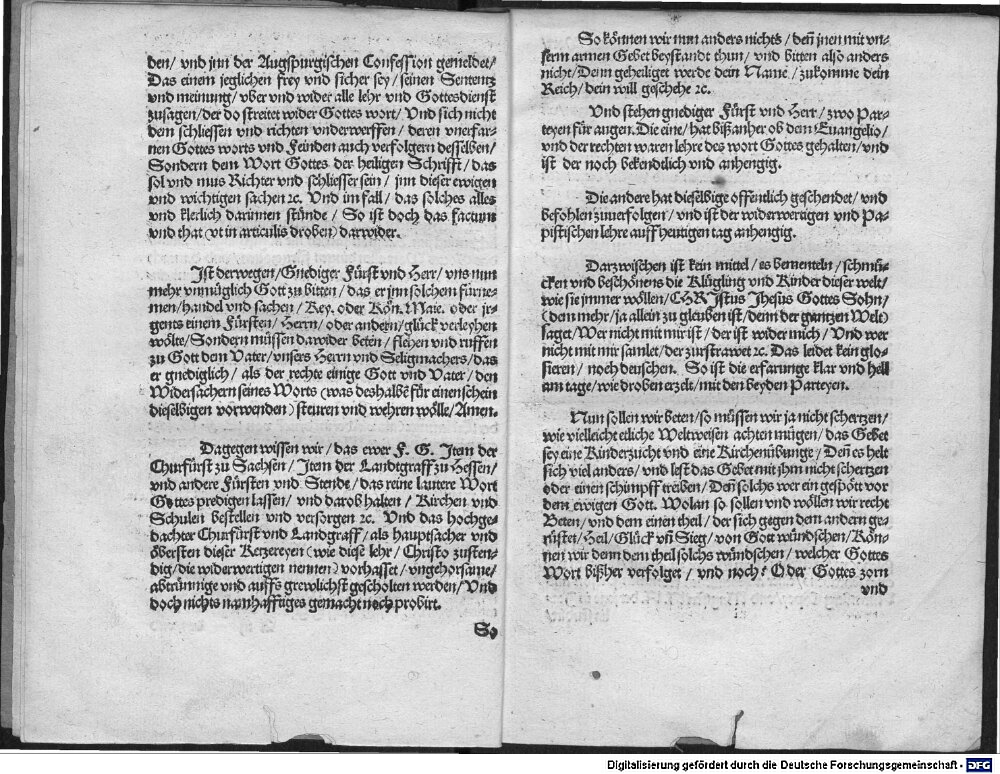 den/ vnd jnn der Augspurgischen Confession gemeldet/
Das einem jeglichen frey vnd sicher sey/ seinen Sententz
vnd meinung/ vber vnd wider alle lehr vnd Gottesdienst
zusagen/ der do streitet wider Gottes wort/ Vnd sich nicht
dem schliessen vnd richten vnderwerffen/ deren vnerfar-
nen Gottes worts vnd Feinden auch verfolgern desselben/
Sondern dem Wort Gottes der heiligen Schrifft/ das
sol vnd mus Richter vnd schliesser sein/ jnn dieser ewigen
vnd wichtigen sachen ꝛc. Vnd im fall/ das solches alles
vnd klerlich darinnen stünde/ So ist doch das factum
vnd that (vt in articulis droben) darwider.
Ist derwegen/ Gnediger Fürst vnd Herr/ vns nun
mehr vnmüglich Gott zu bitten/ das er jnn solchem fürne-
men/ handel vnd sachen/ Key. oder Kön. Maie. oder jr-
gents einem Fürsten/ Herrn/ oder andern/ glück verleyhen
wölte/ Sondern müssen dawider beten/ flehen vnd ruffen
zu Gott dem Vater/ vnsers Herrn vnd Seligmachers/ das
er gnediglich/ als der rechte einige Gott vnd Vater/ den
Widersachern seines Worts (was deshalbē für einen schein
dieselbigen vorwenden) steuren vnd wehren wölle/ Amen.
Dagegen wissen wir/ das ewer F. G. Item der
Churfürst zu Sachsen/ Item der Landtgraff zu Hessen/
vnd andere Fürsten vnd Stende/ das reine lautere Wort
Gottes predigen lassen/ vnd darob halten/ Kirchen vnd
Schulen bestellen vnd versorgen ꝛc. Vnd das hochge-
dachter Churfürst vnd Landgraff/ als hauptsacher vnd
öbersten dieser Ketzereyen (wie diese lehr/ Christo zusten-
dig/ die widerwertigen nennen) vorhasset/ vngehorsame/
abtrünnige vnd auffs grewlichst gescholten werden/ Vnd
doch nichts namhafftiges gemacht noch probirt.
So
So können wir nun anders nichts/ deñ jnen mit vn-
serm armen Gebet beystandt thun/ vnd bitten also anders
nicht/ Denn geheiliget werde dein Name/ zukomme dein
Reich/ dein will geschehe ꝛc.
Vnd stehen gnediger Fürst vnd Herr/ zwo Par-
teyen für augen. Die eine/ hat biß anher ob dem Euangelio/
vnd der rechten waren lehre des wort Gottes gehalten/ vnd
ist der noch bekendtlich vnd anhengig.
Die andere hat dieselbige offentlich geschendet/ vnd
befohlen zuuerfolgen/ vnd ist der widerwertigen vnd Pa-
pistischen lehre auff heutigen tag anhengig.
Darzwischen ist kein mittel/ es bementeln/ schmü-
cken vnd beschönens die Klügling vnd Kinder dieser welt/
wie sie jmmer wöllen/ CHRIstus Jhesus Gottes Sohn/
(dem mehr/ ja allein zu gleuben ist/ denn der gantzen Welt)
saget/ Wer nicht mit mir ist/ der ist wider mich/ Vnd wer
nicht mit mir samlet/ der zurstrawet ꝛc. Das leidet kein glo-
sieren/ noch deuschen. So ist die erfarunge klar vnd hell
am tage/ wie droben erzelt/ mit den beyden Parteyen.
Nun sollen wir beten/ so müssen wir ja nicht schertzen/
wie vielleicht etliche Weltweisen achten mügen/ das Gebet
sey eine Kinderzucht vnd eine Kirchenübunge/ Deñ es helt
sich viel anders/ vnd lest das Gebet mit jhm nicht schertzen
oder einen schimpff treiben/ Deñ solchs wer ein gespött vor
dem ewigen Gott. Wolan so sollen vnd wöllen wir recht
Beten/ vnd dem einen theil/ der sich gegen dem andern ge-
rüstet/ Heil/ Glück vñ Sieg/ von Gott wündschen/ Kön-
nen wir denn dem theil solchs wündschen/ welcher Gottes
Wort bißher verfolget/ vnd noch? Oder Gottes zorn
vnd
Digitalisierung gefördert durch die Deutsche Forschungsgemeinschaft - DFG